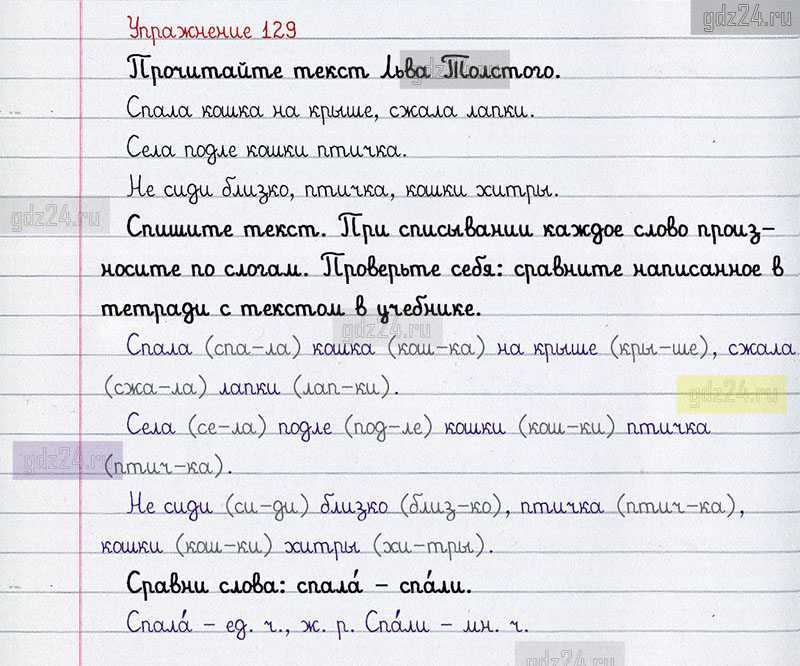 gdz24.ru
Упражнение 129
Прочитайте текст Льва Толстого.
gdz24.ru
Спала кошка на крыше, сжала лапки.
Села подле кошки птичка.
Не сиди близко, птичка, кошки хитры.
gdz24.ru
Спишите текст. При списывании каждое слово произ-
носите по слогам. Проверьте себя: сравните написанное в
тетради с текстом в учебнике.
gdz24.ru
Спала (спа-ла) кошка (кош-ка) на крыше (кры-ше), сжала
(сжа-ла) лапки (лап-ки).
gdz24.ru
Села (се-ла) подле (под-ле) кошки (кош-ки) птичка
gdz24.ru
(птич-ка).
Не сиди (си-ди) близко (близ-ко), птичка (птич-ка),
кошки (кош-ки) хитры (хи-тры).
Сравни слова: спала́ – спа́ли.
Спала́ – ед. ч., ж. р. Спа́ли – мн. ч.
gdz24.ru